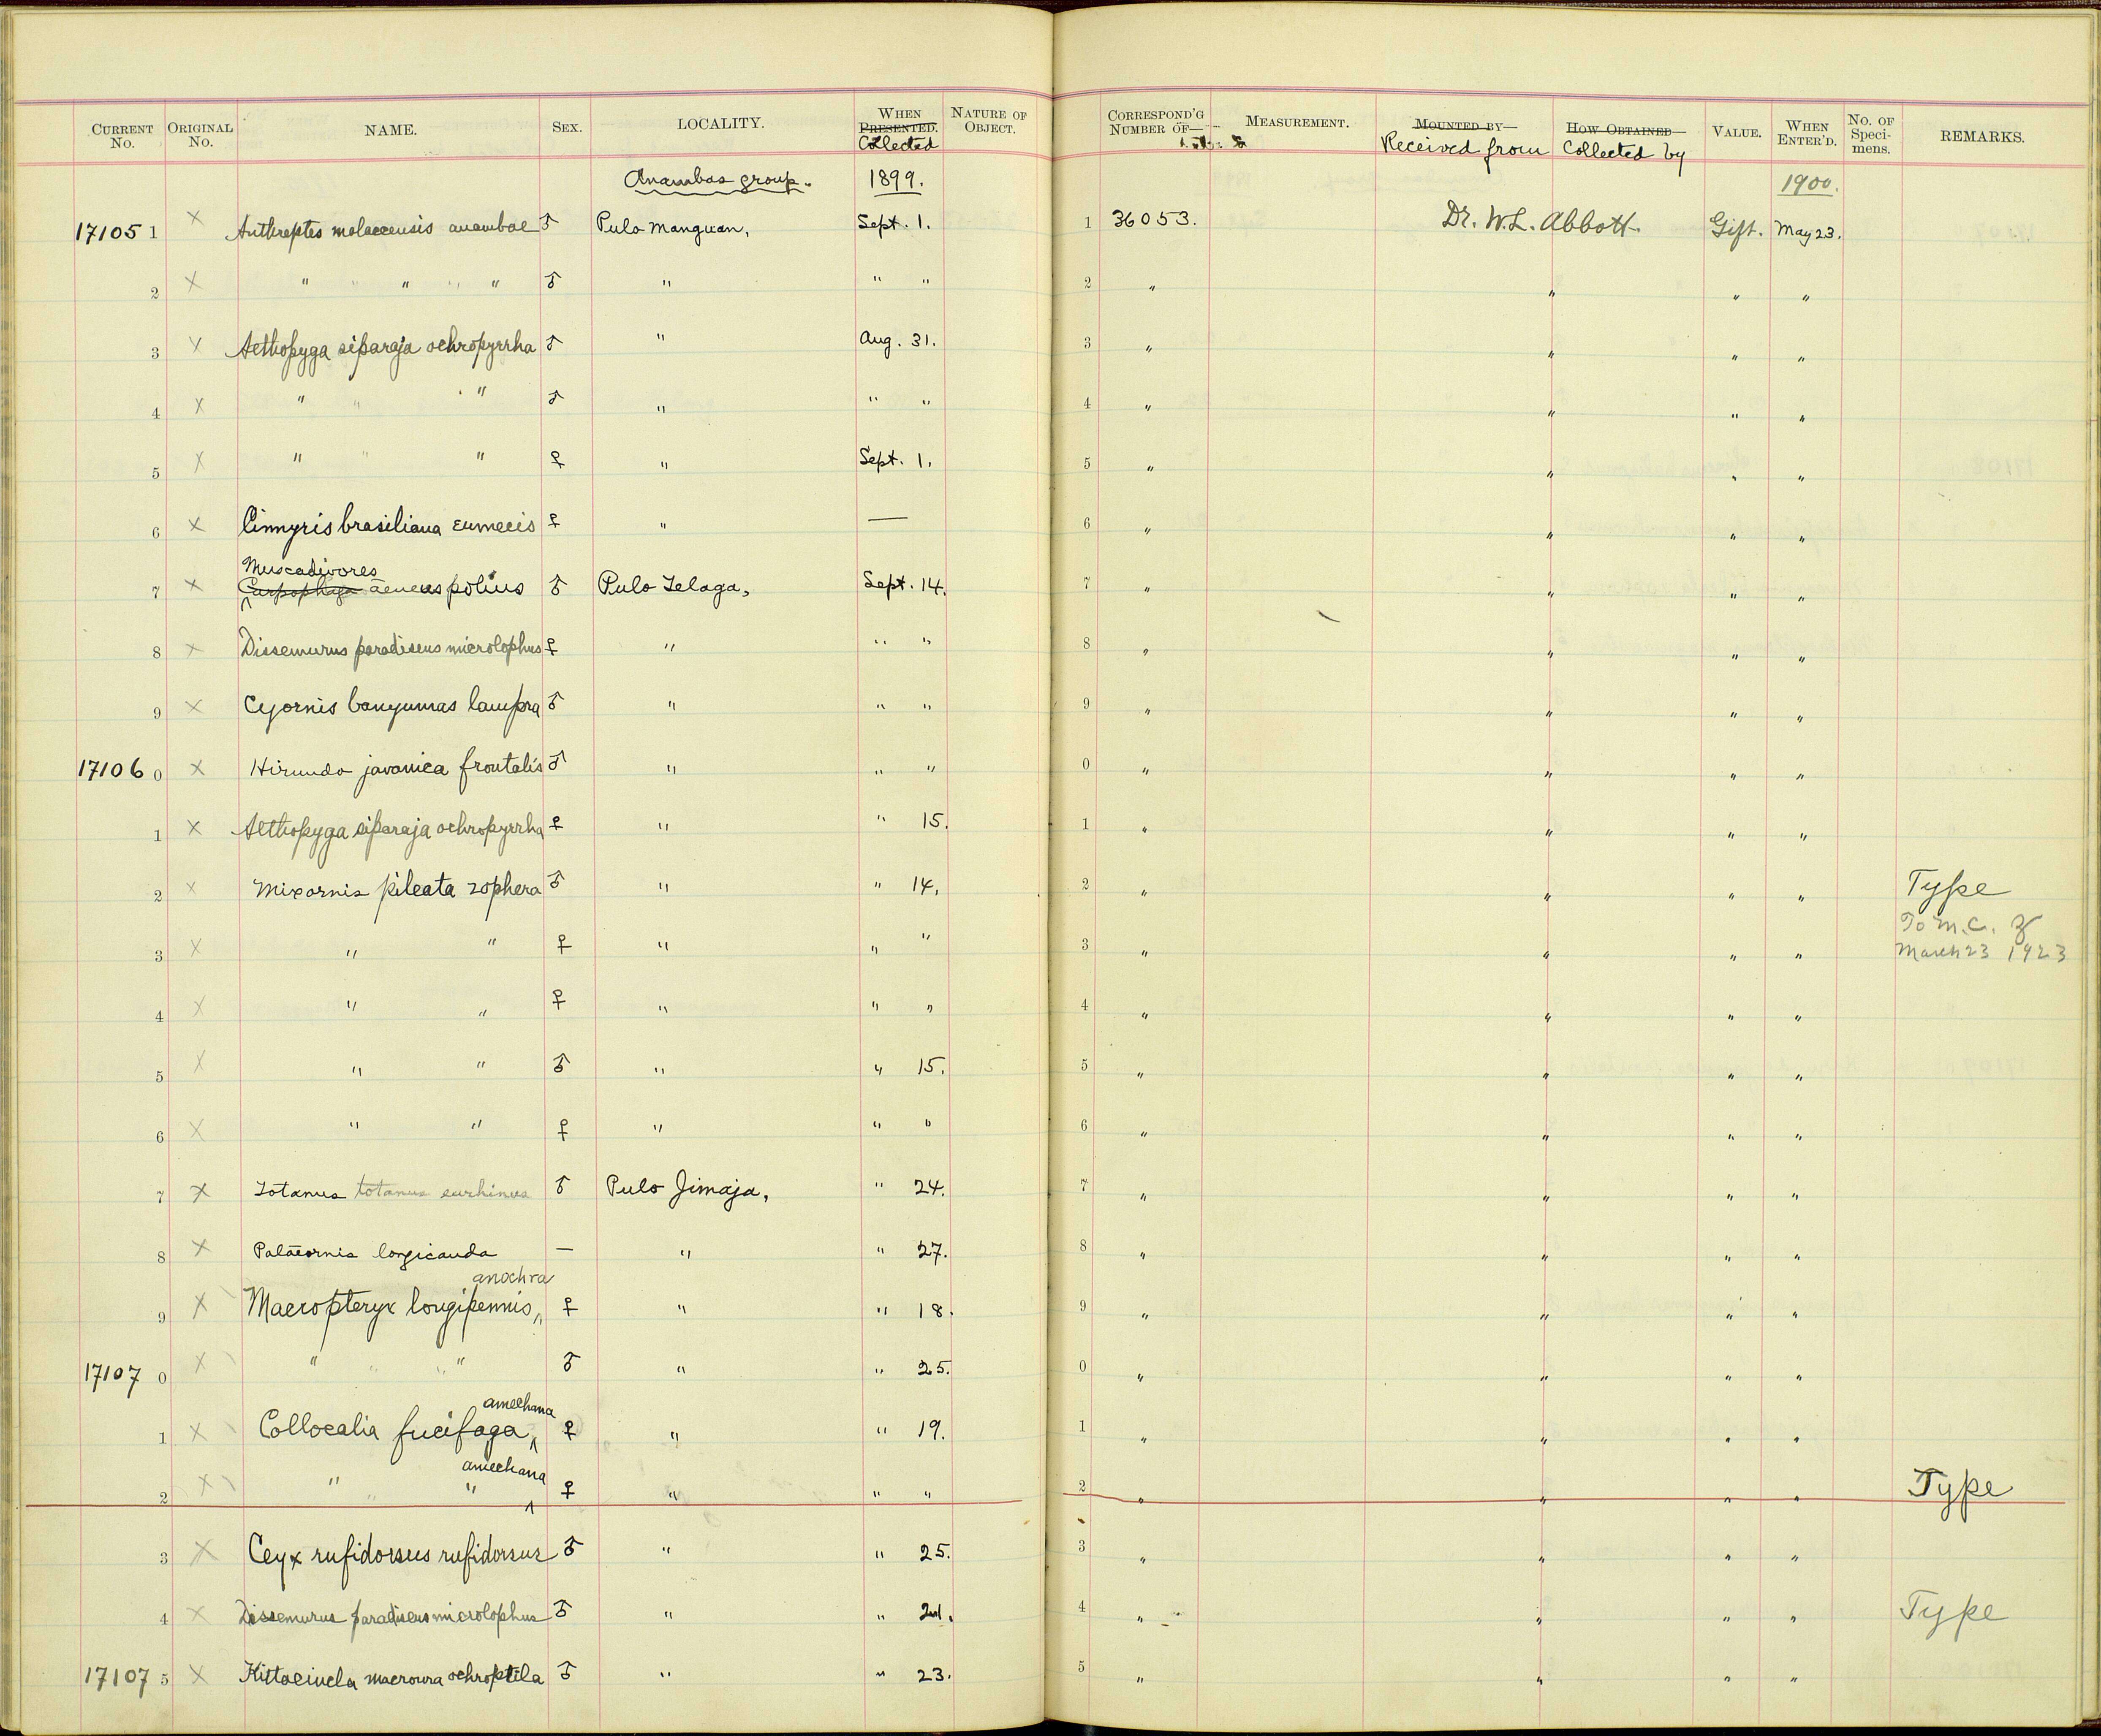 CURRENT No. ORIGINAL No. NAME. SEX. LOCALITY. WHEN PRESENTED. Collected NATURE OF OBJECT. CORRESPOND'G NUMBER OF— MEASUREMENT. MOUNTED BY— Received from HOW OBTAINED— Collected by VALUE. WHEN ENTER'D. No. OF Speci- mens. REMARKS.
Anambas group. 1899. 1900.
17105 1 X Anthreptes malaccensis anambae ♂ Pulo Manguan, Sept. 1. 1 36053. Dr. W. L. Abbott. Gift. May 23.
2 X " " " " " ♂ " " " 2 " " " "
3 X Aethopyga siparaja ochropyrrha ♂ " Aug. 31. 3 " " " "
4 X " " " ♂ " " " 4 " " " "
5 X " " " ♀ " Sept. 1. 5 " " " "
6 X Cinnyris brasiliana eumecis ♀ " — 6 " " " "
Muscadivores
7 X Carpophaga aeneus polius ♂ Pulo Telaga, Sept. 14. 7 " " " "
8 X Dissemurus paradiseus microlophus ♀ " " " 8 " " " "
9 X Cyornis banyumas lampra ♂ " " " 9 " " " "
17106 0 X Hirundo javanica frontalis ♂ " " " 0 " " " "
1 X Aethopyga siparaja ochropyrrha ♀ " " 15. 1 " " " "
2 X Mixornis pileata zophera ♂ " " 14. 2 " " " " Type
To M.C.Z
3 X " " ♀ " " " 3 " " " " March 23 1923
4 X " " ♀ " " " 4 " " " "
5 X " " ♂ " " 15. 5 " " " "
6 X " " ♀ " " " 6 " " " "
7 X Totanus totanus eurhinus ♂ Pulo Jimaja, " 24. 7 " " " "
8 X Palaeornis longicauda — " " 27. 8 " " " "
anochra
9 X Macropteryx longipennis ♀ " " 18. 9 " " " "
17107 0 X " " " " ♂ " " 25. 0 " " " "
amechana
1 X Collocalia fucifaga ♀ " " 19. 1 " " " "
amechana
2 X " " " ♀ " " " 2 " " " " Type
3 X Ceyx rufidorsus rufidorsus ♂ " " 25. 3 " " " "
4 X Dissemurus paradiseus microlophus ♂ " " 4 " " " " Type
17107 5 X Kittacincla macroura ochroptila ♂ " " 23. 5 " " " "